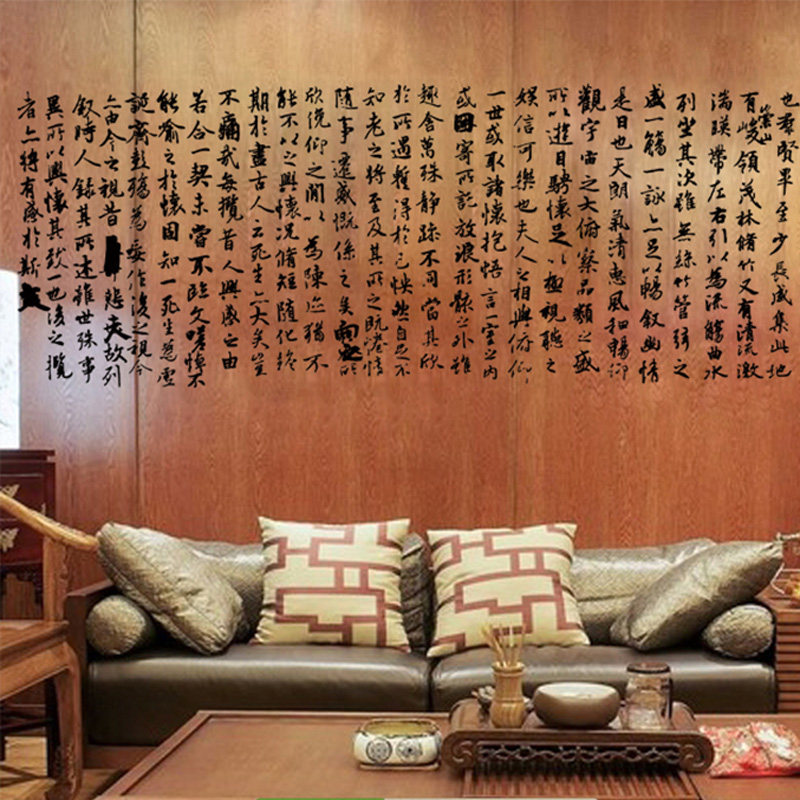 也羣賢畢至少長咸集此地
有崇山峻領茂林脩竹又有清流激
湍暎帶左右引以為流觴曲水
列坐其次雖無絲竹管弦之
盛一觴一詠亦足以暢敘幽情
是日也天朗氣清惠風和暢仰
觀宇宙之大俯察品類之盛
所以遊目騁懷足以極視聽之
娛信可樂也夫人之相與俯仰
一世或取諸懷抱悟言一室之內
或因寄所託放浪形骸之外雖
趣舍萬殊靜躁不同當其欣
於所遇蹔得於己怏然自足不
知老之將至及其所之既惓情
隨事遷感慨係之矣向之所
欣俛仰之閒以為陳迹猶不
能不以之興懷況脩短隨化終
期於盡古人云死生亦大矣豈
不痛哉每攬昔人興感之由
若合一契未嘗不臨文嗟悼不
能喻之於懷固知一死生為虛
誕齊彭殤為妄作後之視今
亦由今之視昔悲夫故列
敘時人錄其所述雖世殊事
異所以興懷其致一也後之攬
者亦將有感於斯文